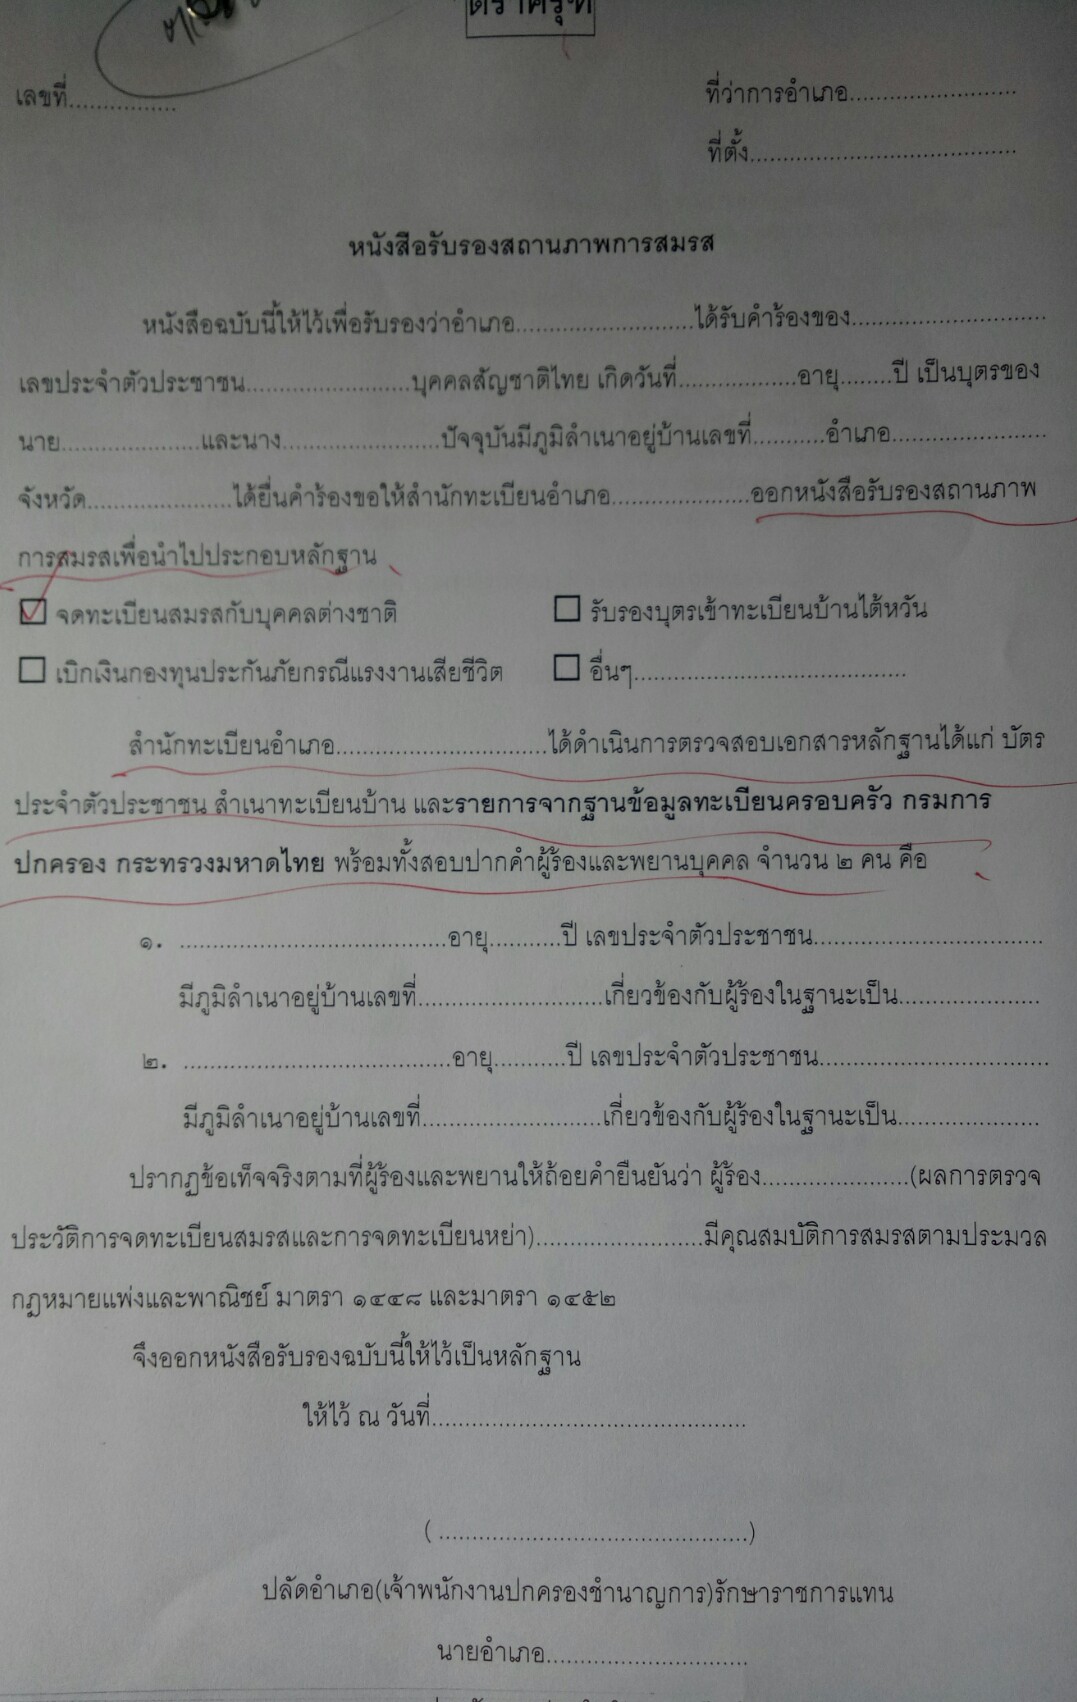 ตราครุฑ
เลขที่................
ที่ว่าการอำเภอ.........................
ที่ตั้ง........................................
หนังสือรับรองสถานภาพการสมรส
หนังสือฉบับนี้ให้ไว้เพื่อรับรองว่าอำเภอ...........................ได้รับคำร้องของ..............................
เลขประจำตัวประชาชน.........................บุคคลสัญชาติไทย เกิดวันที่..................อายุ........ปี เป็นบุตรของ
นาย.....................และนาง........................ปัจจุบันมีภูมิลำเนาอยู่บ้านเลขที่...........อำเภอ........................
จังหวัด......................ได้ยื่นคำร้องขอให้สำนักทะเบียนอำเภอ.....................ออกหนังสือรับรองสถานภาพ
การสมรสเพื่อนำไปประกอบหลักฐาน
☑ จดทะเบียนสมรสกับบุคคลต่างชาติ ☐ รับรองบุตรเข้าทะเบียนบ้านไต้หวัน
☐ เบิกเงินกองทุนประกันภัยกรณีแรงงานเสียชีวิต ☐ อื่นๆ.........................................
สำนักทะเบียนอำเภอ................................ได้ดำเนินการตรวจสอบเอกสารหลักฐานได้แก่ บัตร
ประจำตัวประชาชน สำเนาทะเบียนบ้าน และรายการจากฐานข้อมูลทะเบียนครอบครัว กรมการ
ปกครอง กระทรวงมหาดไทย พร้อมทั้งสอบปากคำผู้ร้องและพยานบุคคล จำนวน ๒ คน คือ
๑. .........................................อายุ...........ปี เลขประจำตัวประชาชน...................................
มีภูมิลำเนาอยู่บ้านเลขที่............................เกี่ยวข้องกับผู้ร้องในฐานะเป็น......................
๒. .........................................อายุ...........ปี เลขประจำตัวประชาชน...................................
มีภูมิลำเนาอยู่บ้านเลขที่...........................เกี่ยวข้องกับผู้ร้องในฐานะเป็น......................
ปรากฏข้อเท็จจริงตามที่ผู้ร้องและพยานให้ถ้อยคำยืนยันว่า ผู้ร้อง......................(ผลการตรวจ
ประวัติการจดทะเบียนสมรสและการจดทะเบียนหย่า).........................มีคุณสมบัติการสมรสตามประมวล
กฎหมายแพ่งและพาณิชย์ มาตรา ๑๔๔๘ และมาตรา ๑๔๕๒
จึงออกหนังสือรับรองฉบับนี้ให้ไว้เป็นหลักฐาน
ให้ไว้ ณ วันที่................................................
( ...............................................)
ปลัดอำเภอ(เจ้าพนักงานปกครองชำนาญการ)รักษาราชการแทน
นายอำเภอ...............................